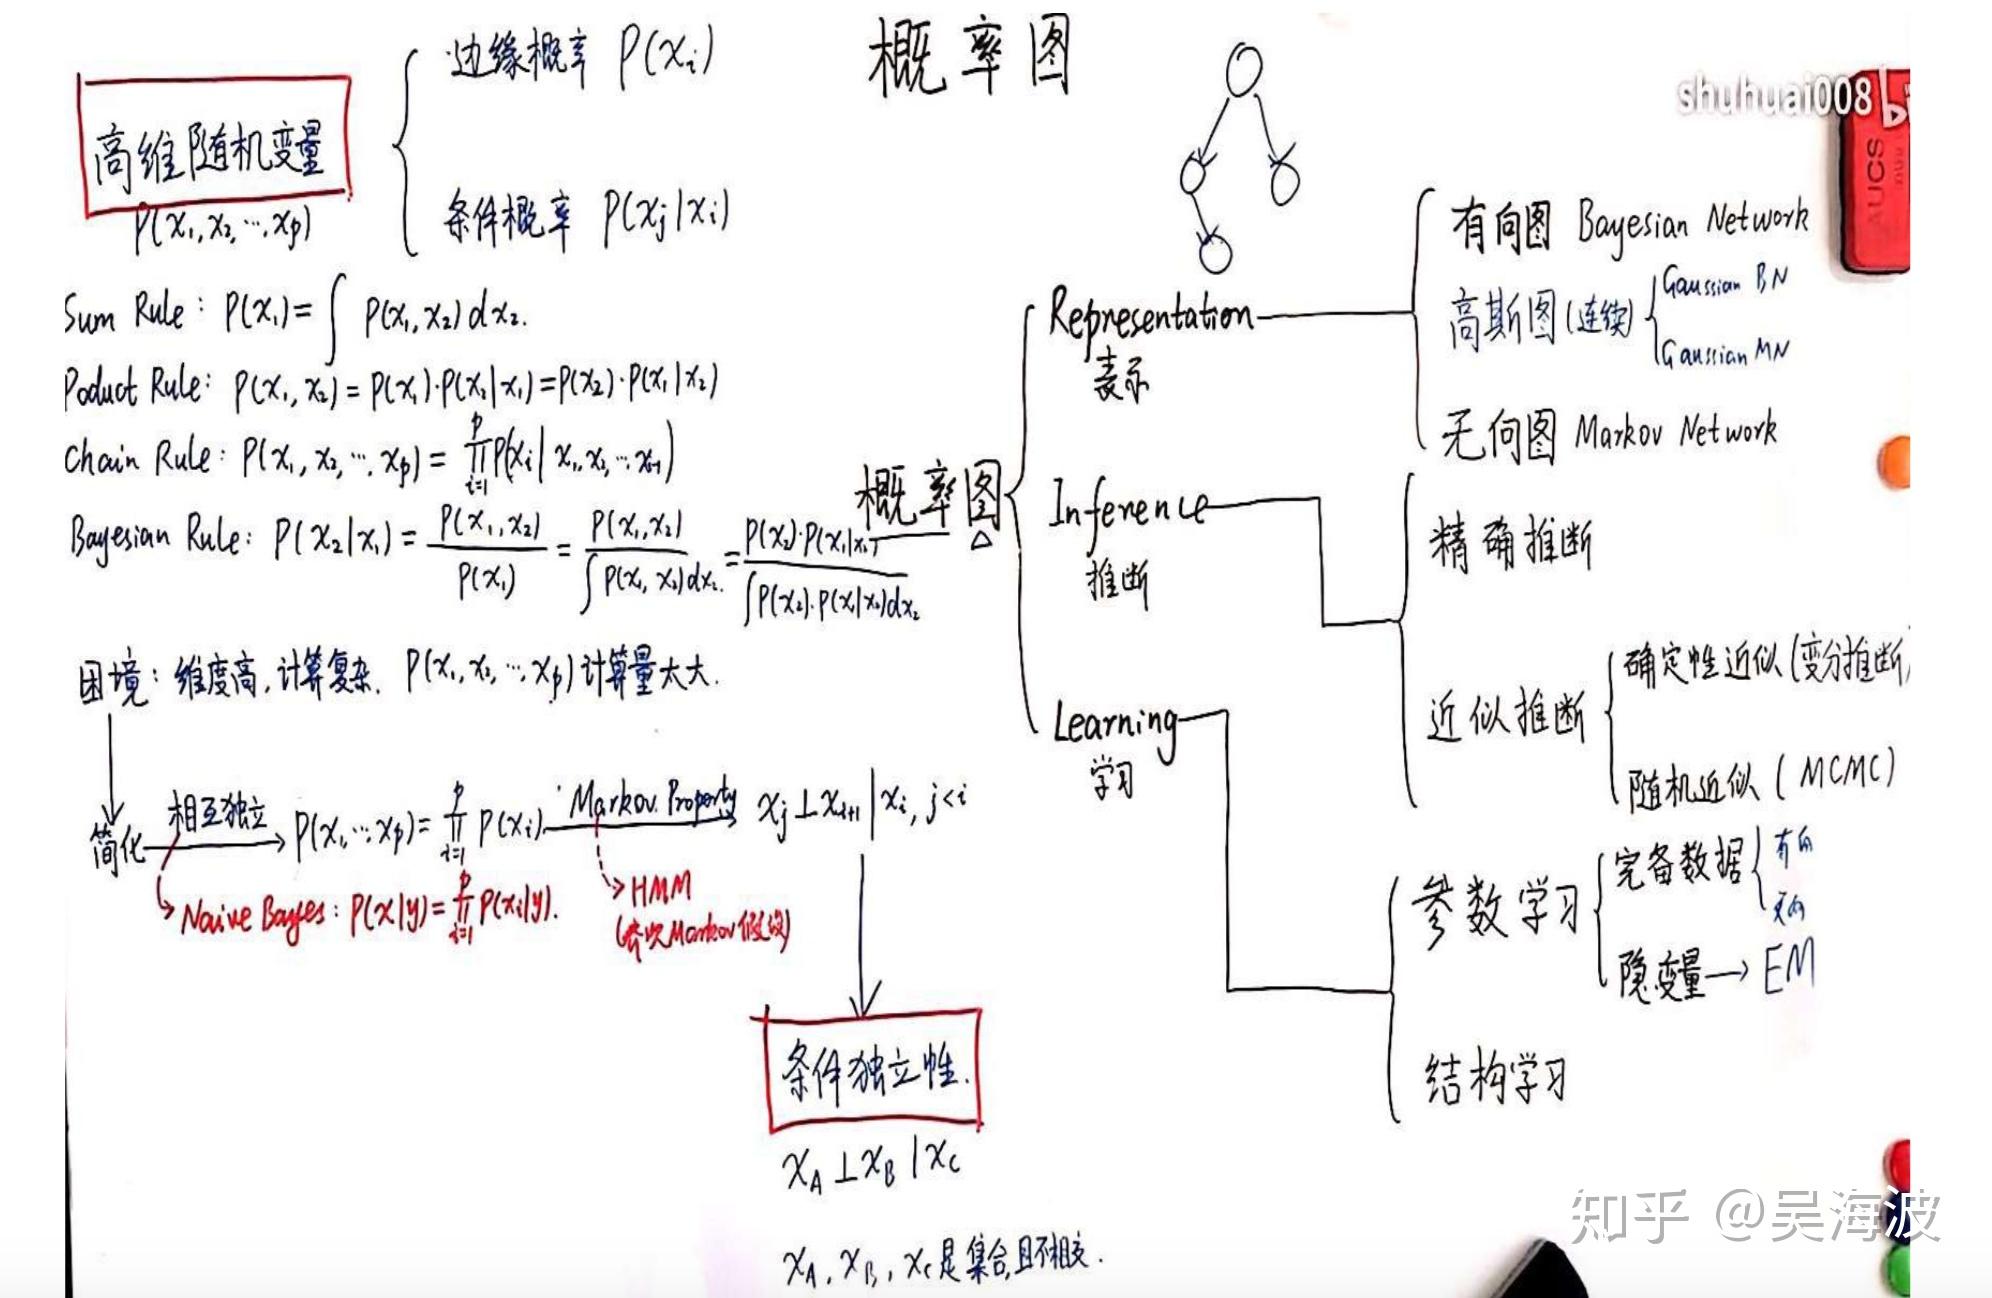 概率图
边缘概率 P(xᵢ)
高维随机变量
P(x₁, x₂, ⋯, xₚ)
条件概率 P(xⱼ|xᵢ)
Sum Rule: P(x₁) = ∫ P(x₁, x₂) dx₂.
Poduct Rule: P(x₁, x₂) = P(x₁)·P(x₂|x₁) = P(x₂)·P(x₁|x₂)
Chain Rule: P(x₁, x₂, ⋯, xₚ) = ∏ᵢ₌₁ᵖ P(xᵢ | x₁, x₂, ⋯ xᵢ₋₁)
Bayesian Rule: P(x₂|x₁) = P(x₁, x₂) / P(x₁) = P(x₁, x₂) / ∫ P(x₁, x₂) dx₂. = P(x₂)·P(x₁|x₂) / ∫ P(x₂)·P(x₁|x₂) dx₂
困境: 维度高, 计算复杂. P(x₁, x₂, ⋯, xₚ) 计算量太大.
简化
相互独立
P(x₁, ⋯, xₚ) = ∏ᵢ₌₁ᵖ P(xᵢ)
Markov Property
xⱼ ⊥ xᵢ₊₁ | xᵢ, j < i
Naive Bayes: P(x|y) = ∏ᵢ₌₁ᵖ P(xᵢ|y).
HMM
(齐次Markov假设)
条件独立性.
x_A ⊥ x_B | x_C
x_A, x_B, x_C 是集合, 且不相交.
概率图
Representation
表示
有向图 Bayesian Network
高斯图 (连续)
Gaussian BN
Gaussian MN
无向图 Markov Network
Inference
推断
精确推断
近似推断
确定性近似 (变分推断)
随机近似 (MCMC)
Learning
学习
参数学习
完备数据
有向
无向
隐变量 → EM
结构学习
shuhuai008
AUCS
知乎 @吴海波